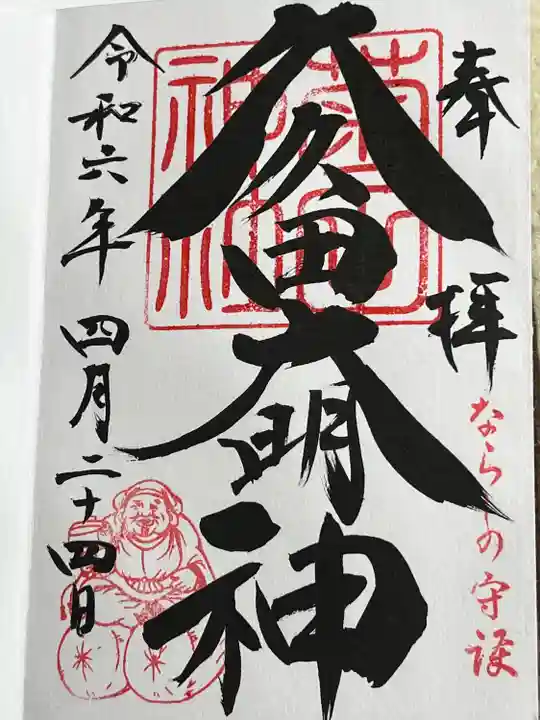 奉拝
ならしの守護
八久田大明神
令和六年四月二十四日